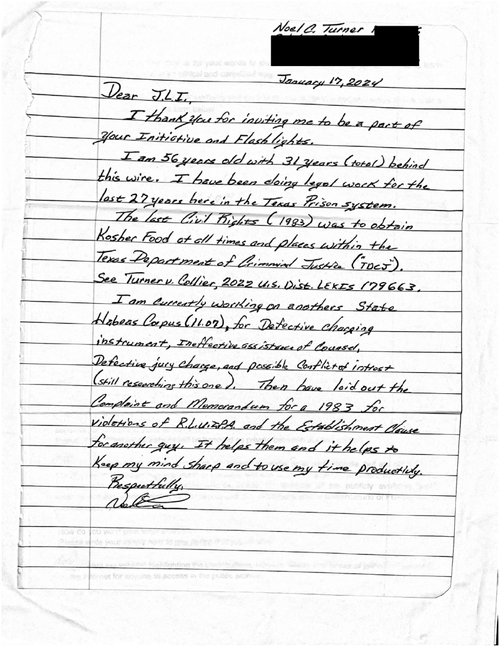 Noel C. Turner
January 17, 2024
Dear J.L.I.,
I thank you for inviting me to be a part of
your Initiative and Flashlights.
I am 56 years old with 31 years (total) behind
this wire. I have been doing legal work for the
last 27 years here in the Texas Prison system.
The last Civil Rights (1983) was to obtain
Kosher Food at all times and places within the
Texas Department of Criminal Justice ("TDCJ").
See Turner v. Collier, 2022 U.S. Dist. LEXIS 179663.
I am currently working on anothers State
Habeas Corpus (11.07), for Defective charging
instrument, Ineffective assistance of Counsel,
Defective jury charge, and possible Conflict of intrest
(still researching this one). Then have laid out the
Complaint and Memorandum for a 1983 for
violations of RLUIPA and the Establishment Clause
for another guy. It helps them and it helps to
keep my mind sharp and to use my time productivly.
Respectfully,